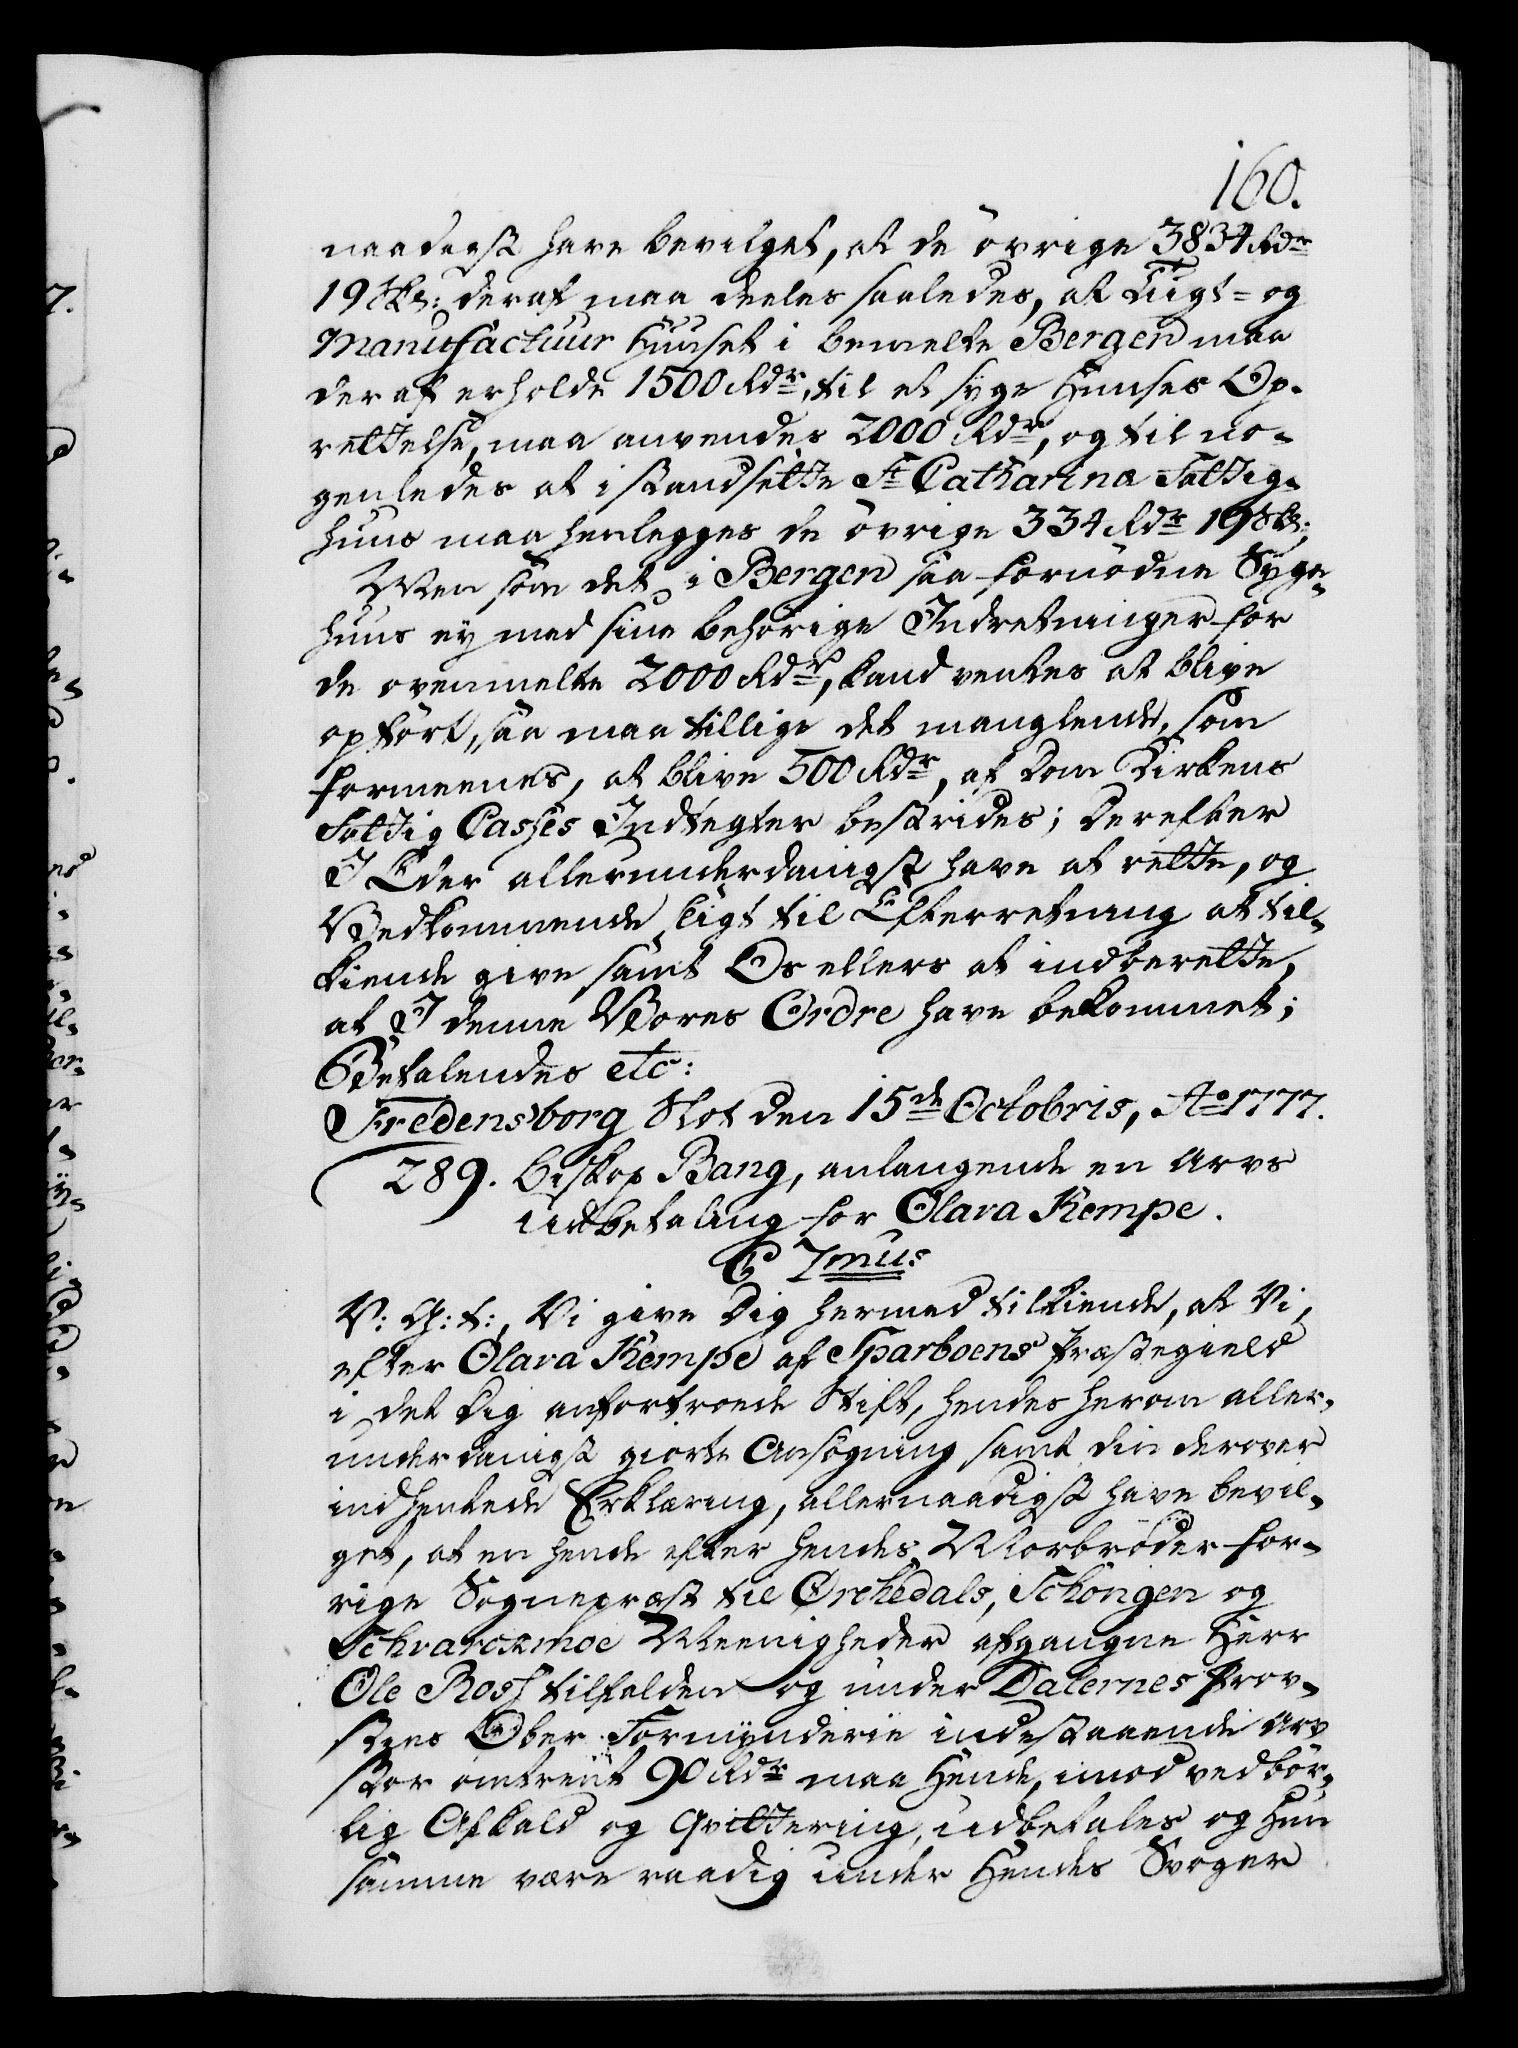 160.
naadigst have bevilget, at de övrige 3834 Rdr
19 skl: deraf maa deeles saaledes, at Tugt= og
Manufactuur Huuset i bemelte Bergen maa
deraf erholde 1500 Rdr, til et syge Huuses Op-
rettelse, maa anvendes 2000 Rdr, og til no-
genledes at istandsette St Catharina Fattig-
huus maa henlegges de övrige 334 Rdr 19 skl:
Men som det i Bergen saa fornödne Syge-
huus ey med sine behörige Indretninger for
de ovenmelte 2000 Rdr, kand ventes at blive
opfört, saa maa tillige det manglende, som
formeenes, at blive 500 Rdr, af Dom Kirkens
Fattig Casses Indtegter bestrides; Derefter
I Eder allerunderdanigst have at rette, og
Vedkommende sligt til Efterretning at til-
kiende give samt Os ellers at indberette,
at I denne Vores Ordre have bekommet;
Befalendes etc:
Fredensborg Slot den 15de Octobris, Ao 1777.
289. Biskop Bang, anlangende en Arvs
udbetaling for Olava Kempe.
C 7mus
V: G: t:, Vi give Dig hermed tilkiende, at Vi,
efter Olava Kempe af Sparboens Præstegield
i det Dig anfortroede Stift, hendes herom aller-
underdanigst giorte Ansögning samt din derover
indhentede Erklæring, allernaadigst have bevil-
get, at en hende efter hendes Morbröder for-
rige Sognepræst til Orchedals, Schongen og
Schvarczmoe Meenigheder afgangne Herr
Ole Ross tilfalden og under Dalernes Prov-
sties Ober Formynderie indestaaende Arv
stor omtrent 90 Rdr maa Hende, imod vedbör-
lig Afkald og Qvittering, udbetales og Hun
samme være raadig under Hendes Svoger